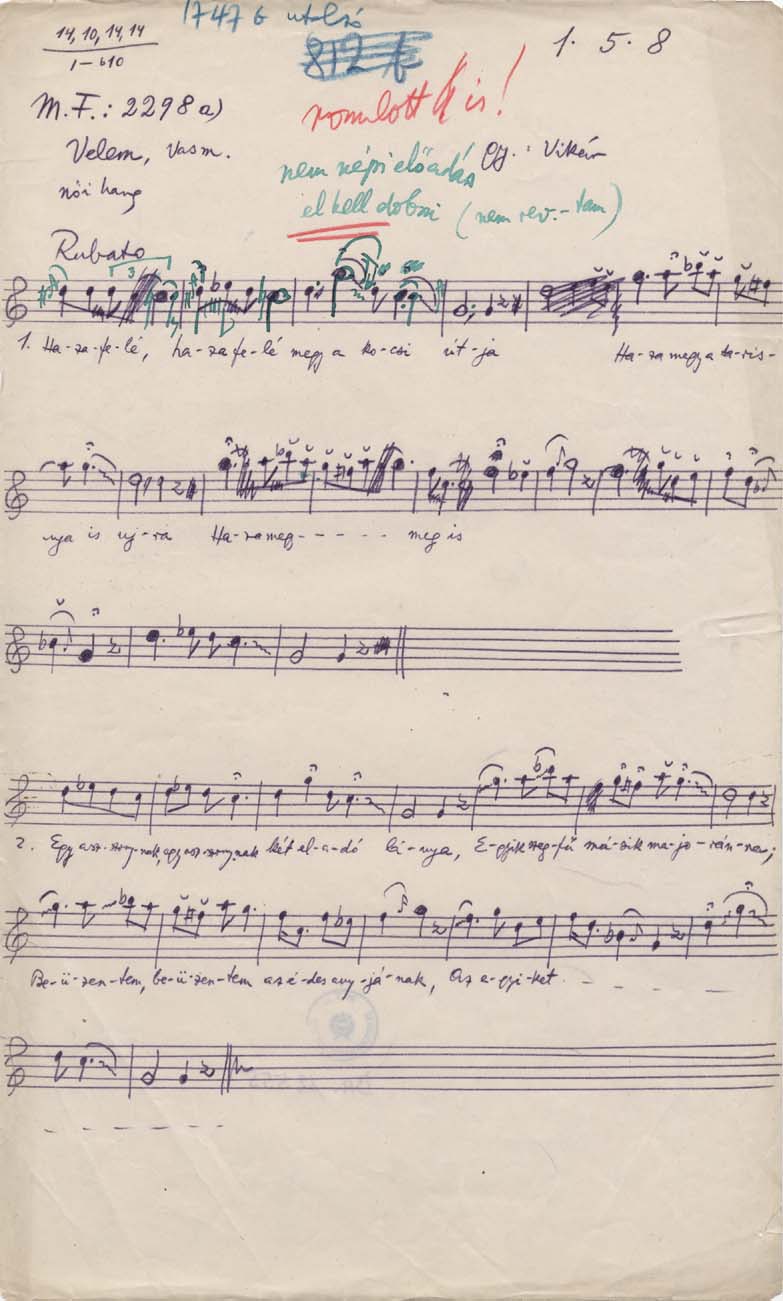 1747 b utolsó
812 b
14, 10, 14, 14
1–b10
1. 5. 8
M.F.: 2298a)
romlott is!
Velem, Vasm.
Gy.: Vikár
nem népi előadás
női hang
el kell dobni (nem rev.-tam)
Rubato
3
1. Ha-za-fe-lé, ha-za fe-lé megy a ko-csi út-ja Ha-za megy a ba-ris-
nya is uj-ra Ha-za meg- - - - - - meg is
2. Egy asz-szony-nak, egy asz-szony-nak két el-a-dó lá-nya, E-gyik szeg-fű má-sik ma-jo-rán-na;
Be-ü-zen-tem, be-ü-zen-tem az é-des any-já-nak, Az e-gyi-ket - - - - -
- - - - - -